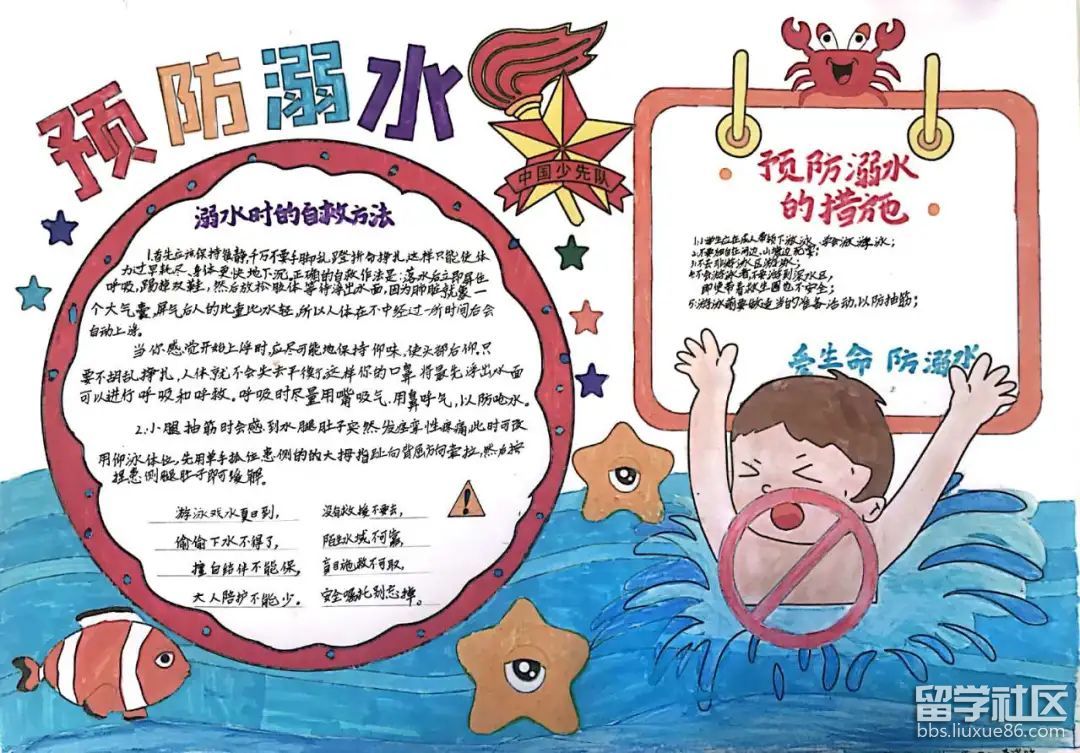 预防溺水
中国少先队
溺水时的自救方法
1.首先应该保持镇静,千万不要手脚乱蹬拼命挣扎,这样只能使体
力过早耗尽、身体更快地下沉。正确的自救做法是:落水后立即屏住
呼吸,踢掉双鞋,然后放松肢体等待浮出水面,因为肺脏就像一
个大气囊,屏气后人的比重比水轻,所以人体在水中经过一所时间后会
自动上浮。
当你感觉开始上浮时,应尽可能地保持仰味,使头部后仰,只
要不胡乱挣扎,人体就不会失去平衡,这样你的口鼻将最先浮出水面
可以进行呼吸和呼救。呼吸时尽量用嘴吸气,用鼻呼气,以防呛水。
2.小腿抽筋时会感到水腿肚子突然发痉挛性疼痛此时可改
用仰泳体位,先用单手抓住患侧的的大拇指趾向背屈方向牵拉,然后按
捏患侧腿肚子即可缓解。
游泳戏水夏日到, 没有救援不要去,
偷偷下水不得了, 陌生水域不可靠,
擅自结伴不能保, 盲目施救不可取,
大人陪护不能少。 安全嘱托别忘掉。
预防溺水
的措施
1.小学生应在成人带领下游泳,学会游泳;
2.不要独自在河边、山塘边玩耍;
3.不去非游泳区游泳;
4.不会游泳者不要游到深水区,
即使带着救生圈也不安全;
5.游泳前要做适当的准备活动,以防抽筋;
爱生命 防溺水
留学社区
bbs.liuxue86.com